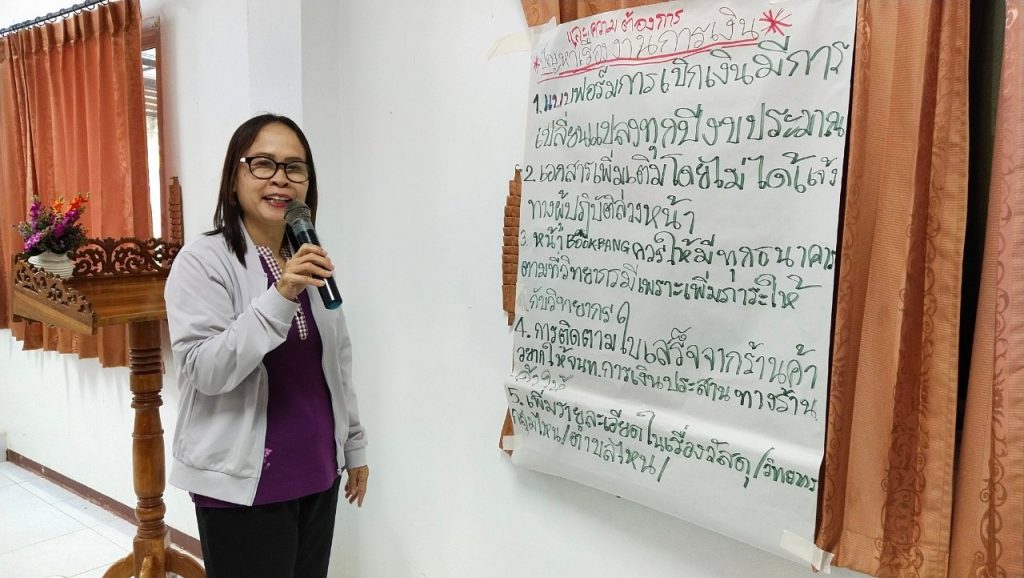 และความต้องการ
*ปัญหาเรื่องงานการเงิน*
1. แบบฟอร์มการเบิกเงินมีการ
เปลี่ยนแปลงทุกปีงบประมาณ
2. เอกสารเพิ่มเติมโดยไม่ได้แจ้ง
ทางผู้ปฏิบัติล่วงหน้า
3. หน้า BOOKBANG ควรให้มีทุกธนาคาร
ตามที่วิทยากรมีเพราะเพิ่มภาระให้
กับวิทยากร
4. การติดตามใบเสร็จจากร้านค้า
อยากให้จนท.การเงินประสานทางร้าน
5. เพิ่มรายละเอียดในเรื่องวัสดุ/วิทยากร
กลุ่มไหน/ตำบลไหน/